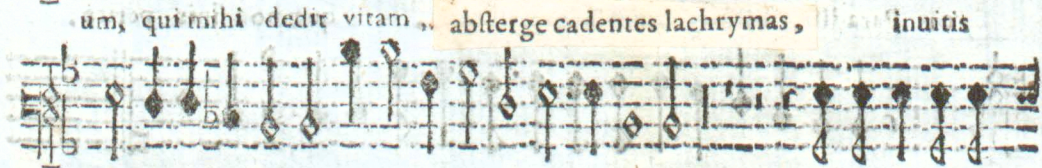 um, qui mihi dedit vitam, abſterge cadentes lachrymas, inuitis